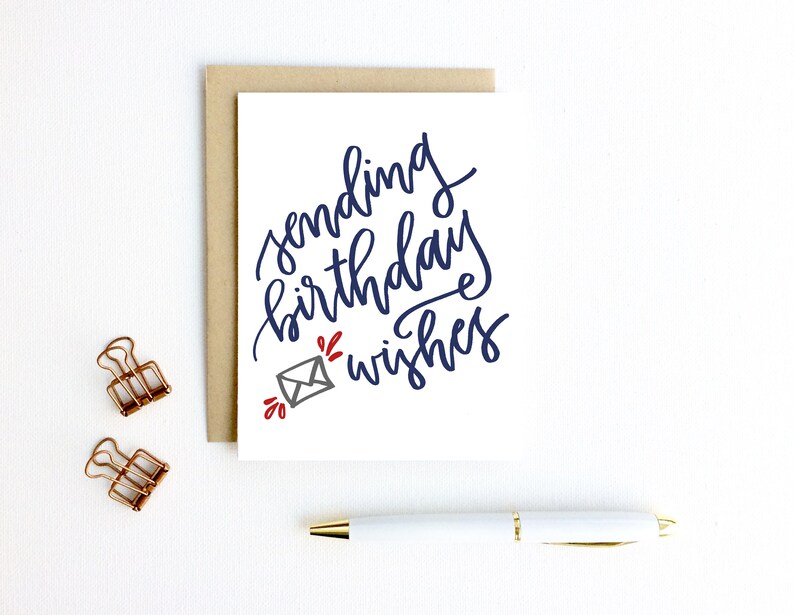 sending
birthday
wishes